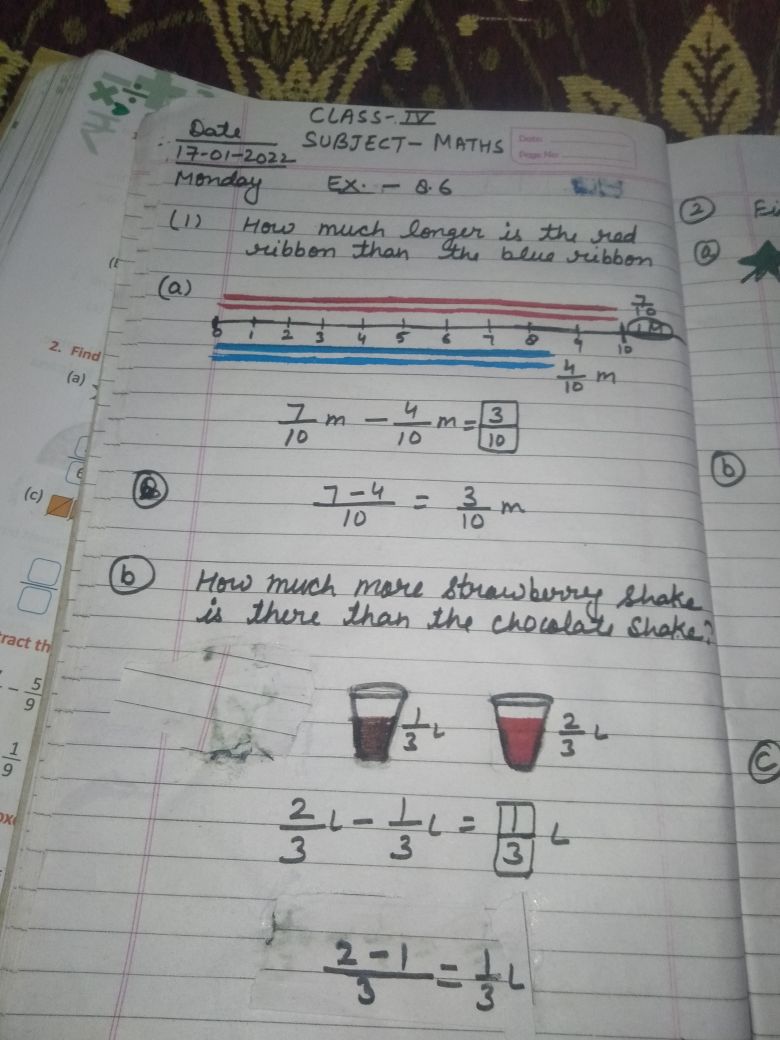 CLASS-IV
Date
17-01-2022
SUBJECT- MATHS
Date:
Page No:
Monday
EX. - 8.6
(1) How much longer is the red
ribbon than the blue ribbon
(a)
7/10
0 1 2 3 4 5 6 7 8 9 10
1M
4/10 m
7/10 m - 4/10 m = 3/10
7-4/10 = 3/10 m
b How much more strawberry shake
is there than the chocolate shake?
1/3 L
2/3 L
2/3 L - 1/3 L = 1/3 L
2-1/3 = 1/3 L
2. Find
(a)
(c)
tract th
- 5/9
1/9
2
a
b
C